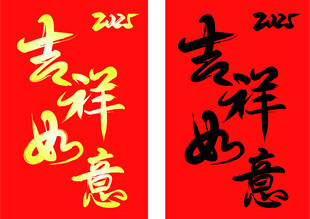 2025
吉祥如意
2025
吉祥如意